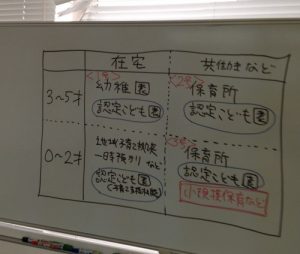 在宅
共働きなど
3～5才
<1号>
幼稚園
認定こども園
<2号>
保育所
認定こども園
0～2才
地域子育て支援
一時預かり など
認定こども園
(子育て支援機能)
<3号>
保育所
認定こども園
小規模保育など